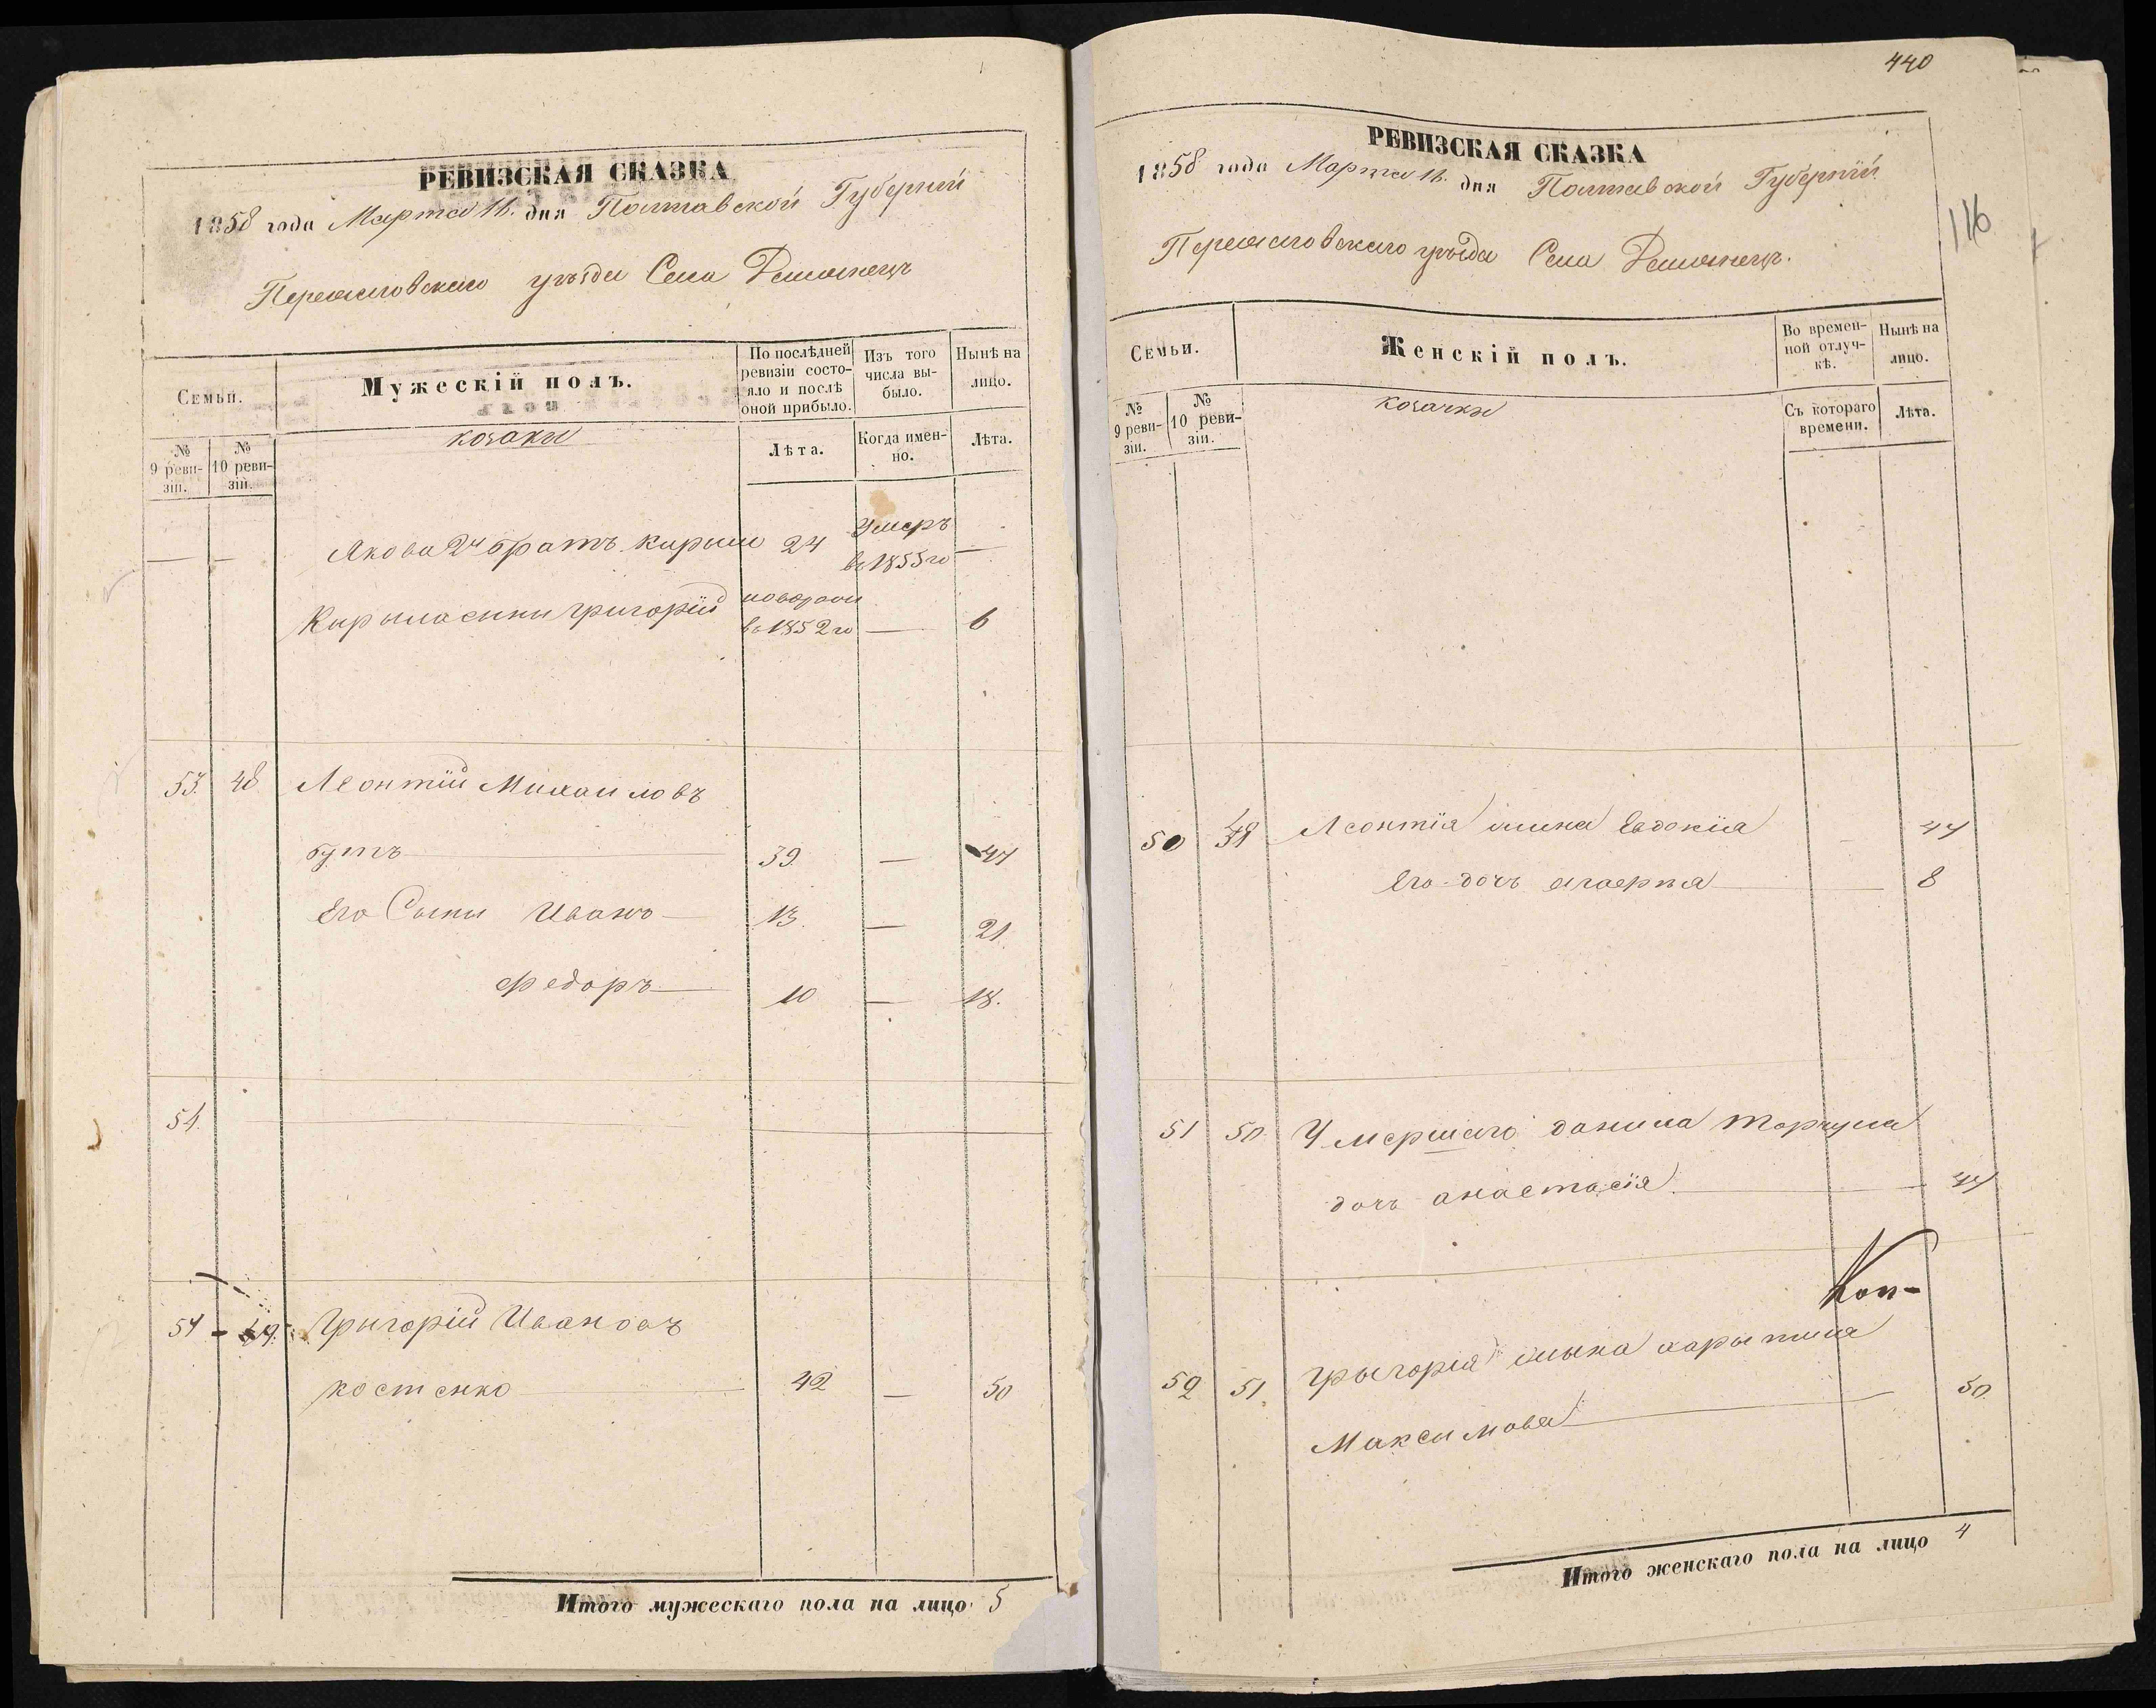 РЕВИЗСКАЯ СКАЗКА
1858 года Марта 11. дня Полтавской Губерніи
Переяславскаго уѣзда Села Демьянецъ
Семьи.
Мужескій полъ.
По послѣдней ревизіи состояло и послѣ оной прибыло.
Изъ того числа выбыло.
Нынѣ на лицо.
№ 9 ревизіи.
№ 10 ревизіи.
козаки
Лѣта.
Когда именно.
Лѣта.
Якова 2й братъ Кирило 24 Умеръ в 1855 го —
Кирила сынъ григорій новорожд в 1852 го — 6
53. 48 Леонтій Михаиловъ
бутъ 39. — 47
Его Сыны Иванъ 13. — 21.
Федоръ 10 — 18.
54.
54 - 49. Григорій Ивановъ
костенко 42 — 50
Итого мужескаго пола на лицо 5
440
РЕВИЗСКАЯ СКАЗКА
1858 года Марта 11. дня Полтавской Губерніи
116
Переяславскаго уѣзда Села Демьянецъ.
Семьи.
Женскій полъ.
Во временной отлучкѣ.
Нынѣ на лицо.
№ 9 ревизіи.
№ 10 ревизіи.
козачки
Съ котораго времени.
Лѣта.
50 49 Леонтія жина Евдокія — 44
Его дочъ агаерия — 8
51 50. Умершаго данила торчила
дочъ анастасія 44
Коп-
52 51. григорія жына харытина
Максимова — 50.
Итого женскаго пола на лицо 4